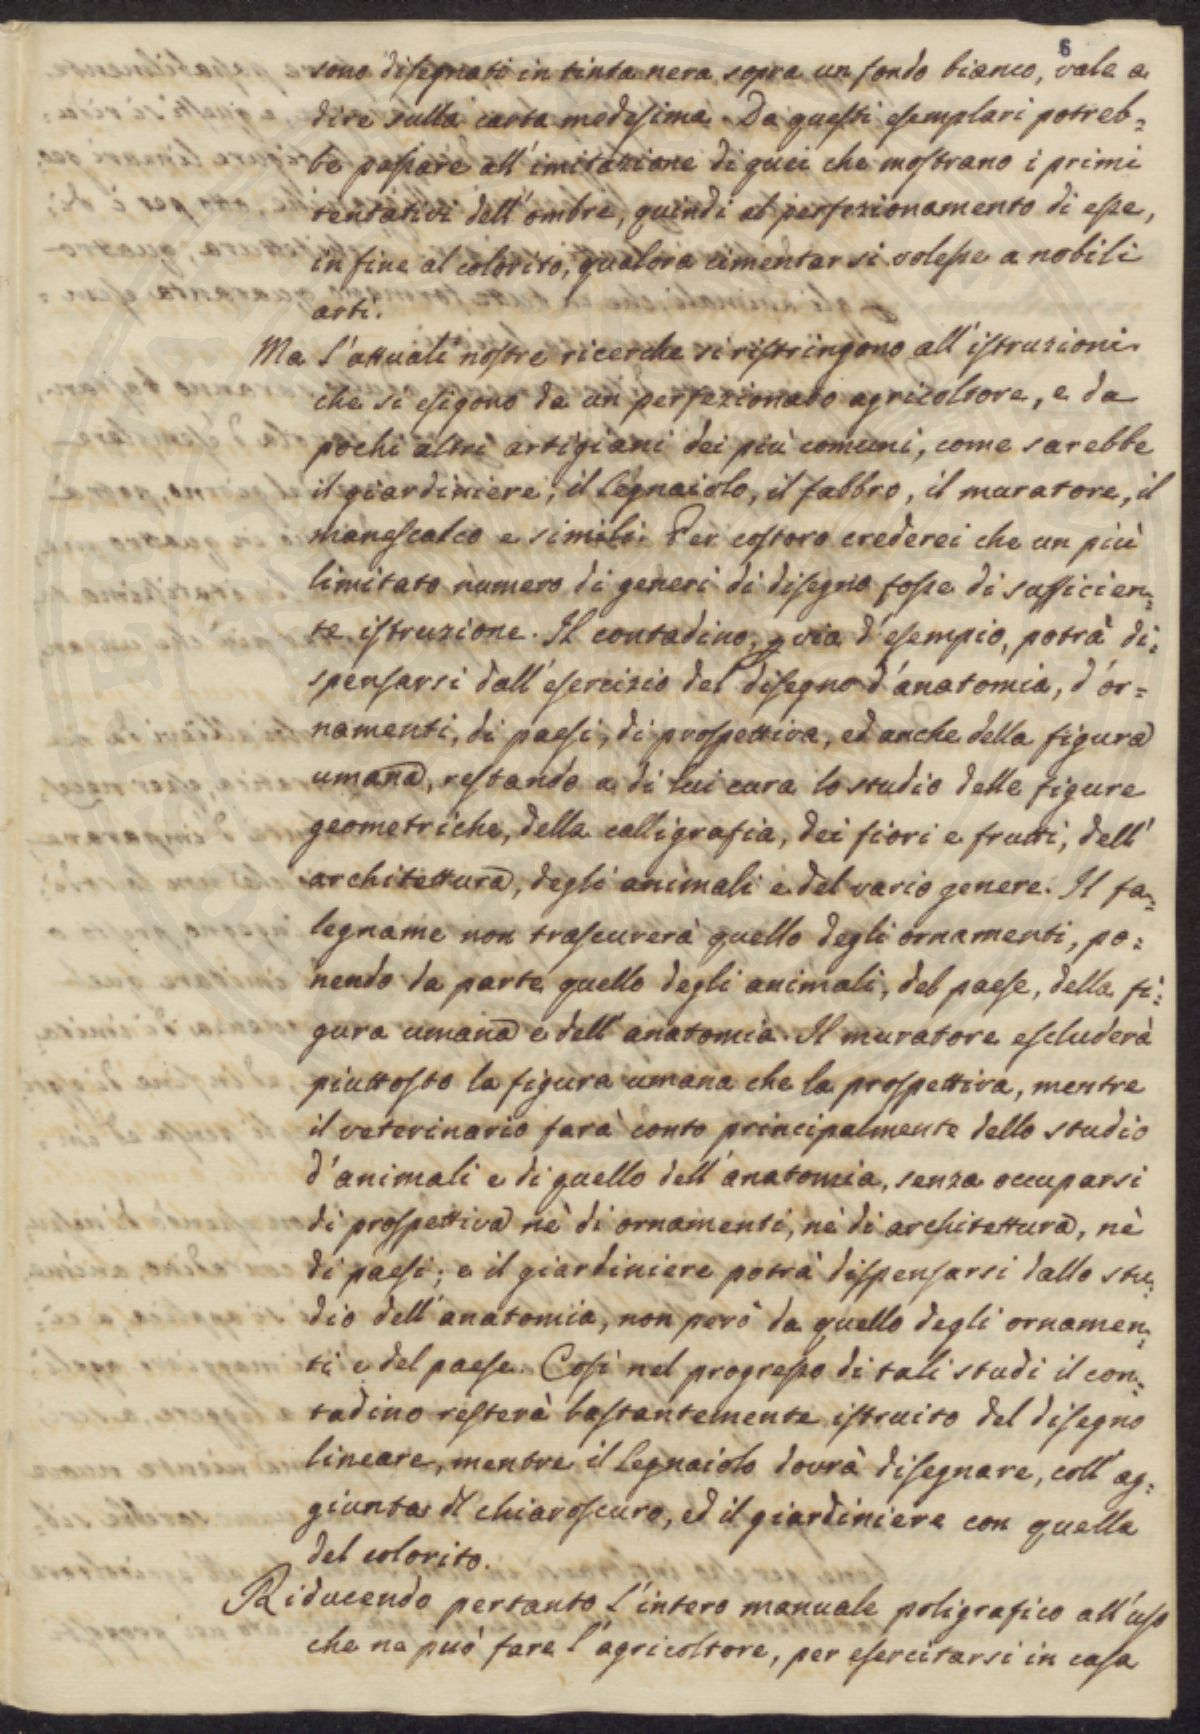 6
sono disegnati in tinta nera sopra un fondo bianco, vale a
dire sulla carta medesima. Da questi esemplari potreb=
be passare all'imitazione di quei che mostrano i primi
tentativi dell'ombre, quindi al perfezionamento di esse,
in fine al colorito, qualora cimentar si volesse a nobili
arti.
Ma l'attuali nostre ricerche si ristringono all'istruzioni
che si esigono da un perfezionato agricoltore, e da
pochi altri artigiani dei più comuni, come sarebbe
il giardiniere, il Legnaiolo, il fabbro, il muratore, il
manescalco e simili. Per costoro crederei che un più
limitato numero di generi di disegno fosse di sufficien=
te istruzione. Il contadino, p via d'esempio, potrà di=
spensarsi dall'esercizio del disegno d'anatomia, d'or=
namenti, di paesi, di prospettiva, ed anche della figura
umana, restando a di lui cura lo studio delle figure
geometriche, della calligrafia, dei fiori e frutti, dell'
architettura, degli animali e del vario genere. Il fa=
legname non trascurerà quello degli ornamenti, po=
nendo da parte quello degli animali, del paese, della fi=
gura umana e dell'anatomia. Il muratore escluderà
piuttosto la figura umana che la prospettiva, mentre
il veterinario farà conto principalmente dello studio
d'animali e di quello dell'anatomia, senza occuparsi
di prospettiva nè di ornamenti, nè di architettura, nè
di paesi; e il giardiniere potrà dispensarsi dallo stu=
dio dell'anatomia, non però da quello degli ornamen=
ti e del paese. Così nel progresso di tali studi il con=
tadino resterà bastantemente istruito del disegno
lineare, mentre il Legnaiolo dovrà disegnare, coll'ag=
giunta dl chiaroscuro, ed il giardiniere con quella
del colorito.
Riducendo pertanto l'intero manuale poligrafico all'uso
che ne può fare l'agricoltore, per esercitarsi in casa